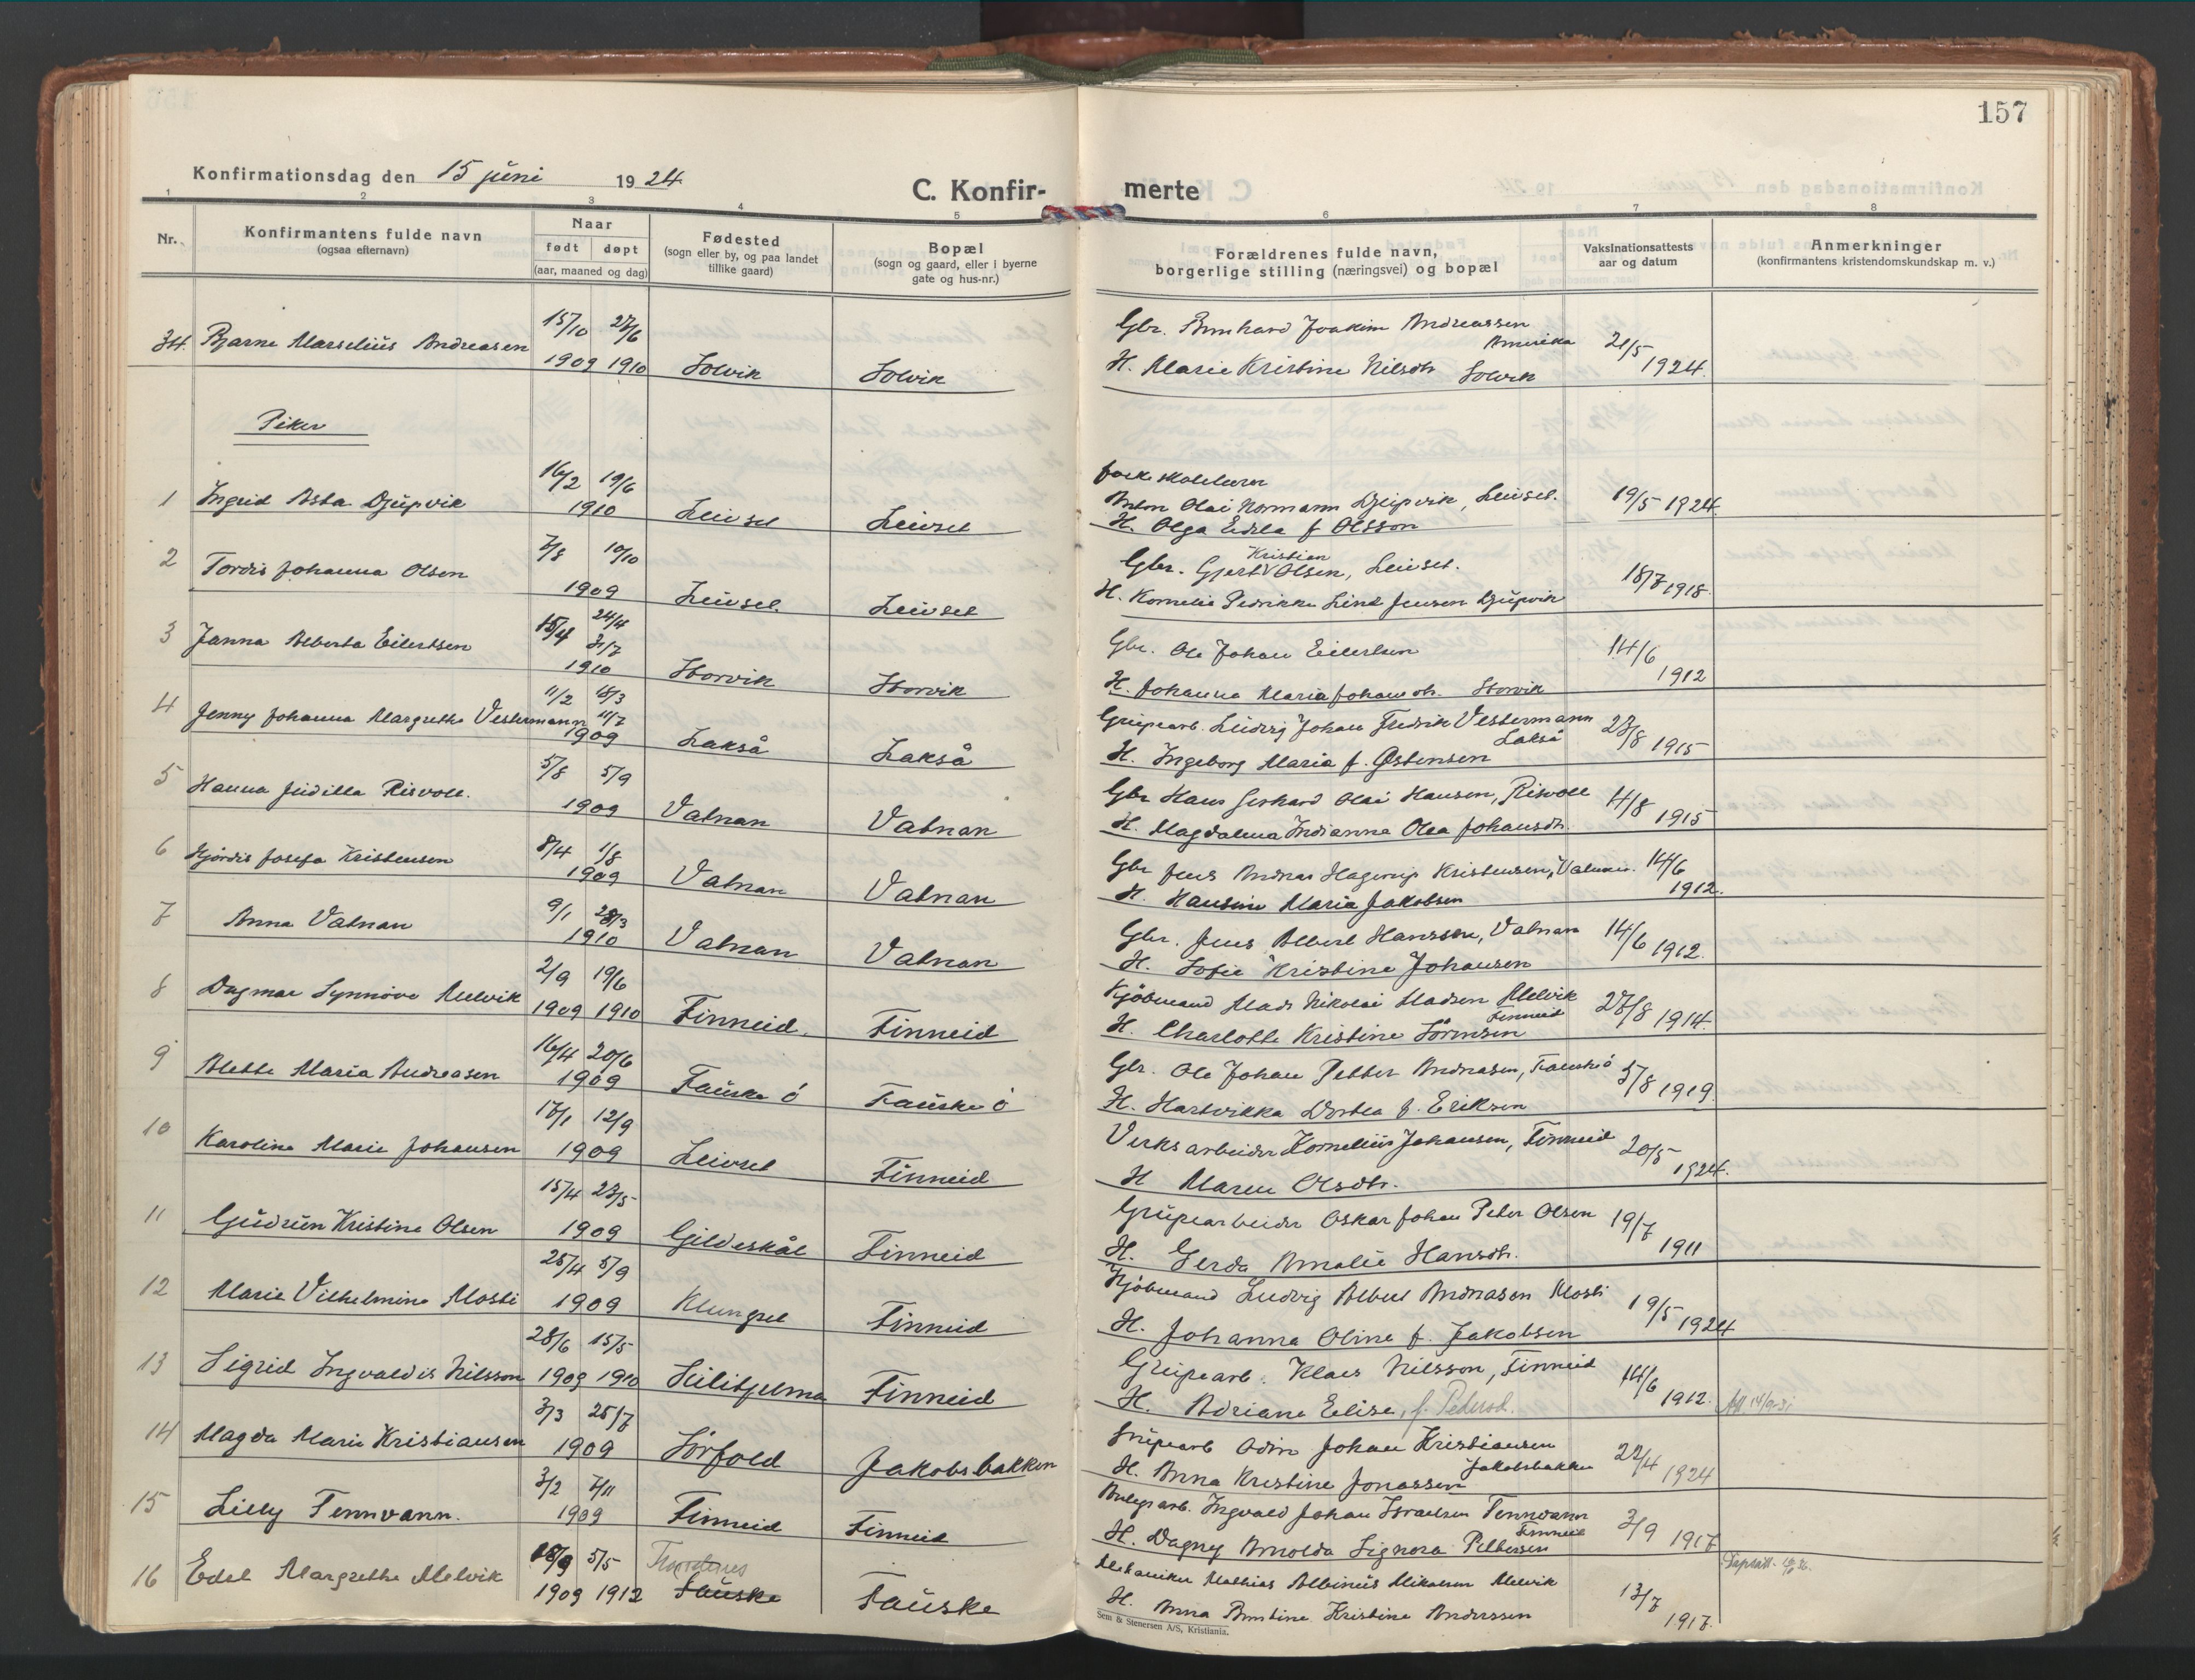 157
Konfirmationsdag den 15 juni 1924
C. Konfir-
merte
1 2 3 4 5 6 7 8
Nr.
Konfirmantens fulde navn
(ogsaa efternavn)
Naar
født døpt
(aar, maaned og dag)
Fødested
(sogn eller by, og paa landet
tillike gaard)
Bopæl
(sogn og gaard, eller i byerne
gate og hus-nr.)
Forældrenes fulde navn,
borgerlige stilling (næringsvei) og bopæl
Vaksinationsattests
aar og datum
Anmerkninger
(konfirmantens kristendomskundskap m. v.)
34. Bjarne Marselius Andreasen 15/10 1909 27/6 1910 Solvik Solvik
Gbr. Bernhard Joakim Andreassen Amerika
H. Marie Kristine Nilsdtr Solvik
21/5 1924.
Piker
1 Ingrid Asta Djupvik 16/2 19/6 1910 Leivset Leivset
folkeskolelærer
Anton Olai Normann Djupvik, Leivset.
H. Olga Edila f Olsson
19/5 1924.
2 Tordis Johanna Olsen 7/8 10/10 1909 Leivset. Leivset
Gbr. Gjert Kristian Olsen, Leivset.
H. Kornelie Pedrikke Lind Jensen Djupvik
18/7 1918.
3 Janna Alberta Eilertsen 15/4 24/4 31/7 1910 Horvik Horvik
Gbr. Ole Johan Eilertsen
H. Johanna Maria Johansdtr. Horvik
14/6 1912
4 Jenny Johanna Margrethe Vestermann 11/2 18/3 11/7 1909 Lakså Lakså
Grupearb. Ludvig Johan Fredrik Vestermann Lakså
H. Ingeborg Maria f. Østensen
23/8 1915
5 Hanna Juditta Risvoll. 5/8 5/9 1909 Vatnan Vatnan
Gbr Hans Gerhard Olai Hansen, Risvoll
H. Magdalena Indianna Olea Johansdtr.
4/8 1915
6 Hjördis Josefa Kristensen 8/4 1/8 1909 Vatnan Vatnan
Gbr Jens Andreas Hagerup Kristensen, Vatnan.
H. Hansine Maria Jakobsen
14/6 1912.
7 Anna Vatnan 9/1 28/3 1910 Vatnan Vatnan
Gbr. Jens Albert Hanssen, Vatnan
H. Sofie Kristine Johansen
14/6 1912.
8 Dagmar Synnöve Melvik 2/9 1909 19/6 1910 Finneid. Finneid
Kjöbmand Mads Nikolai Madsen Melvik Finneid
H. Charlotte Kristine Sörensen
27/8 1914.
9 Alette Maria Andreasen 16/4 20/6 1909 Fauske ö Fauske ö
Gbr. Ole Johan Petter Andreasen, Fauskeö
H. Hartvikka Dortea f. Eriksen
5/8 1919.
10 Karoline Marie Johansen 17/1 12/9 1909 Leivset Finneid
Verksarbeider Kornelius Johansen, Finneid
H Maren Olsdtr.
20/5 1924.
11 Gudrun Kristine Olsen 15/4 23/5 1909 Gildeskål Finneid
Grupearbeider Oskar Johan Peter Olsen
H. Gerda Amalie Hansdtr.
19/7 1911
12 Marie Vilhelmine Mosti 25/4 5/9 1909 Klungset Finneid
Kjöbmand Ludvig Albert Andreasen Mosti
H. Johanna Oline f. Jakobsen
19/5 1924
13 Sigrid Ingvaldis Nilsson 28/6 1909 15/5 1910 Sulitjelma Finneid
Grupearb. Klaes Nilsson, Finneid
H. Adriane Elise, f. Pedersd.
14/6 1912.
14 Magda Marie Kristiansen 3/3 25/7 1909 Sörfold Jakobsbakken
Grupearb Odin Johan Kristiansen Jakobsbakken
H. Anna Kristine Jonassen
22/4 1924
15 Lilly Tennvann. 3/2 7/11 1909 Finneid Finneid
Anlegsarb. Ingvald Johan Israelsen Tennvann Finneid
H. Dagny Arnolda Signora Pettersen
3/9 1917
16 Edel Margrethe Melvik 18/9 1909 5/5 1912 Fauske Fauske
Mekaniker Mathias Albinius Mikalsen Melvik
H. Anna Berntine Kristine Anderssen
13/7 1917.
Sem & Stenersen A/S, Kristiania.